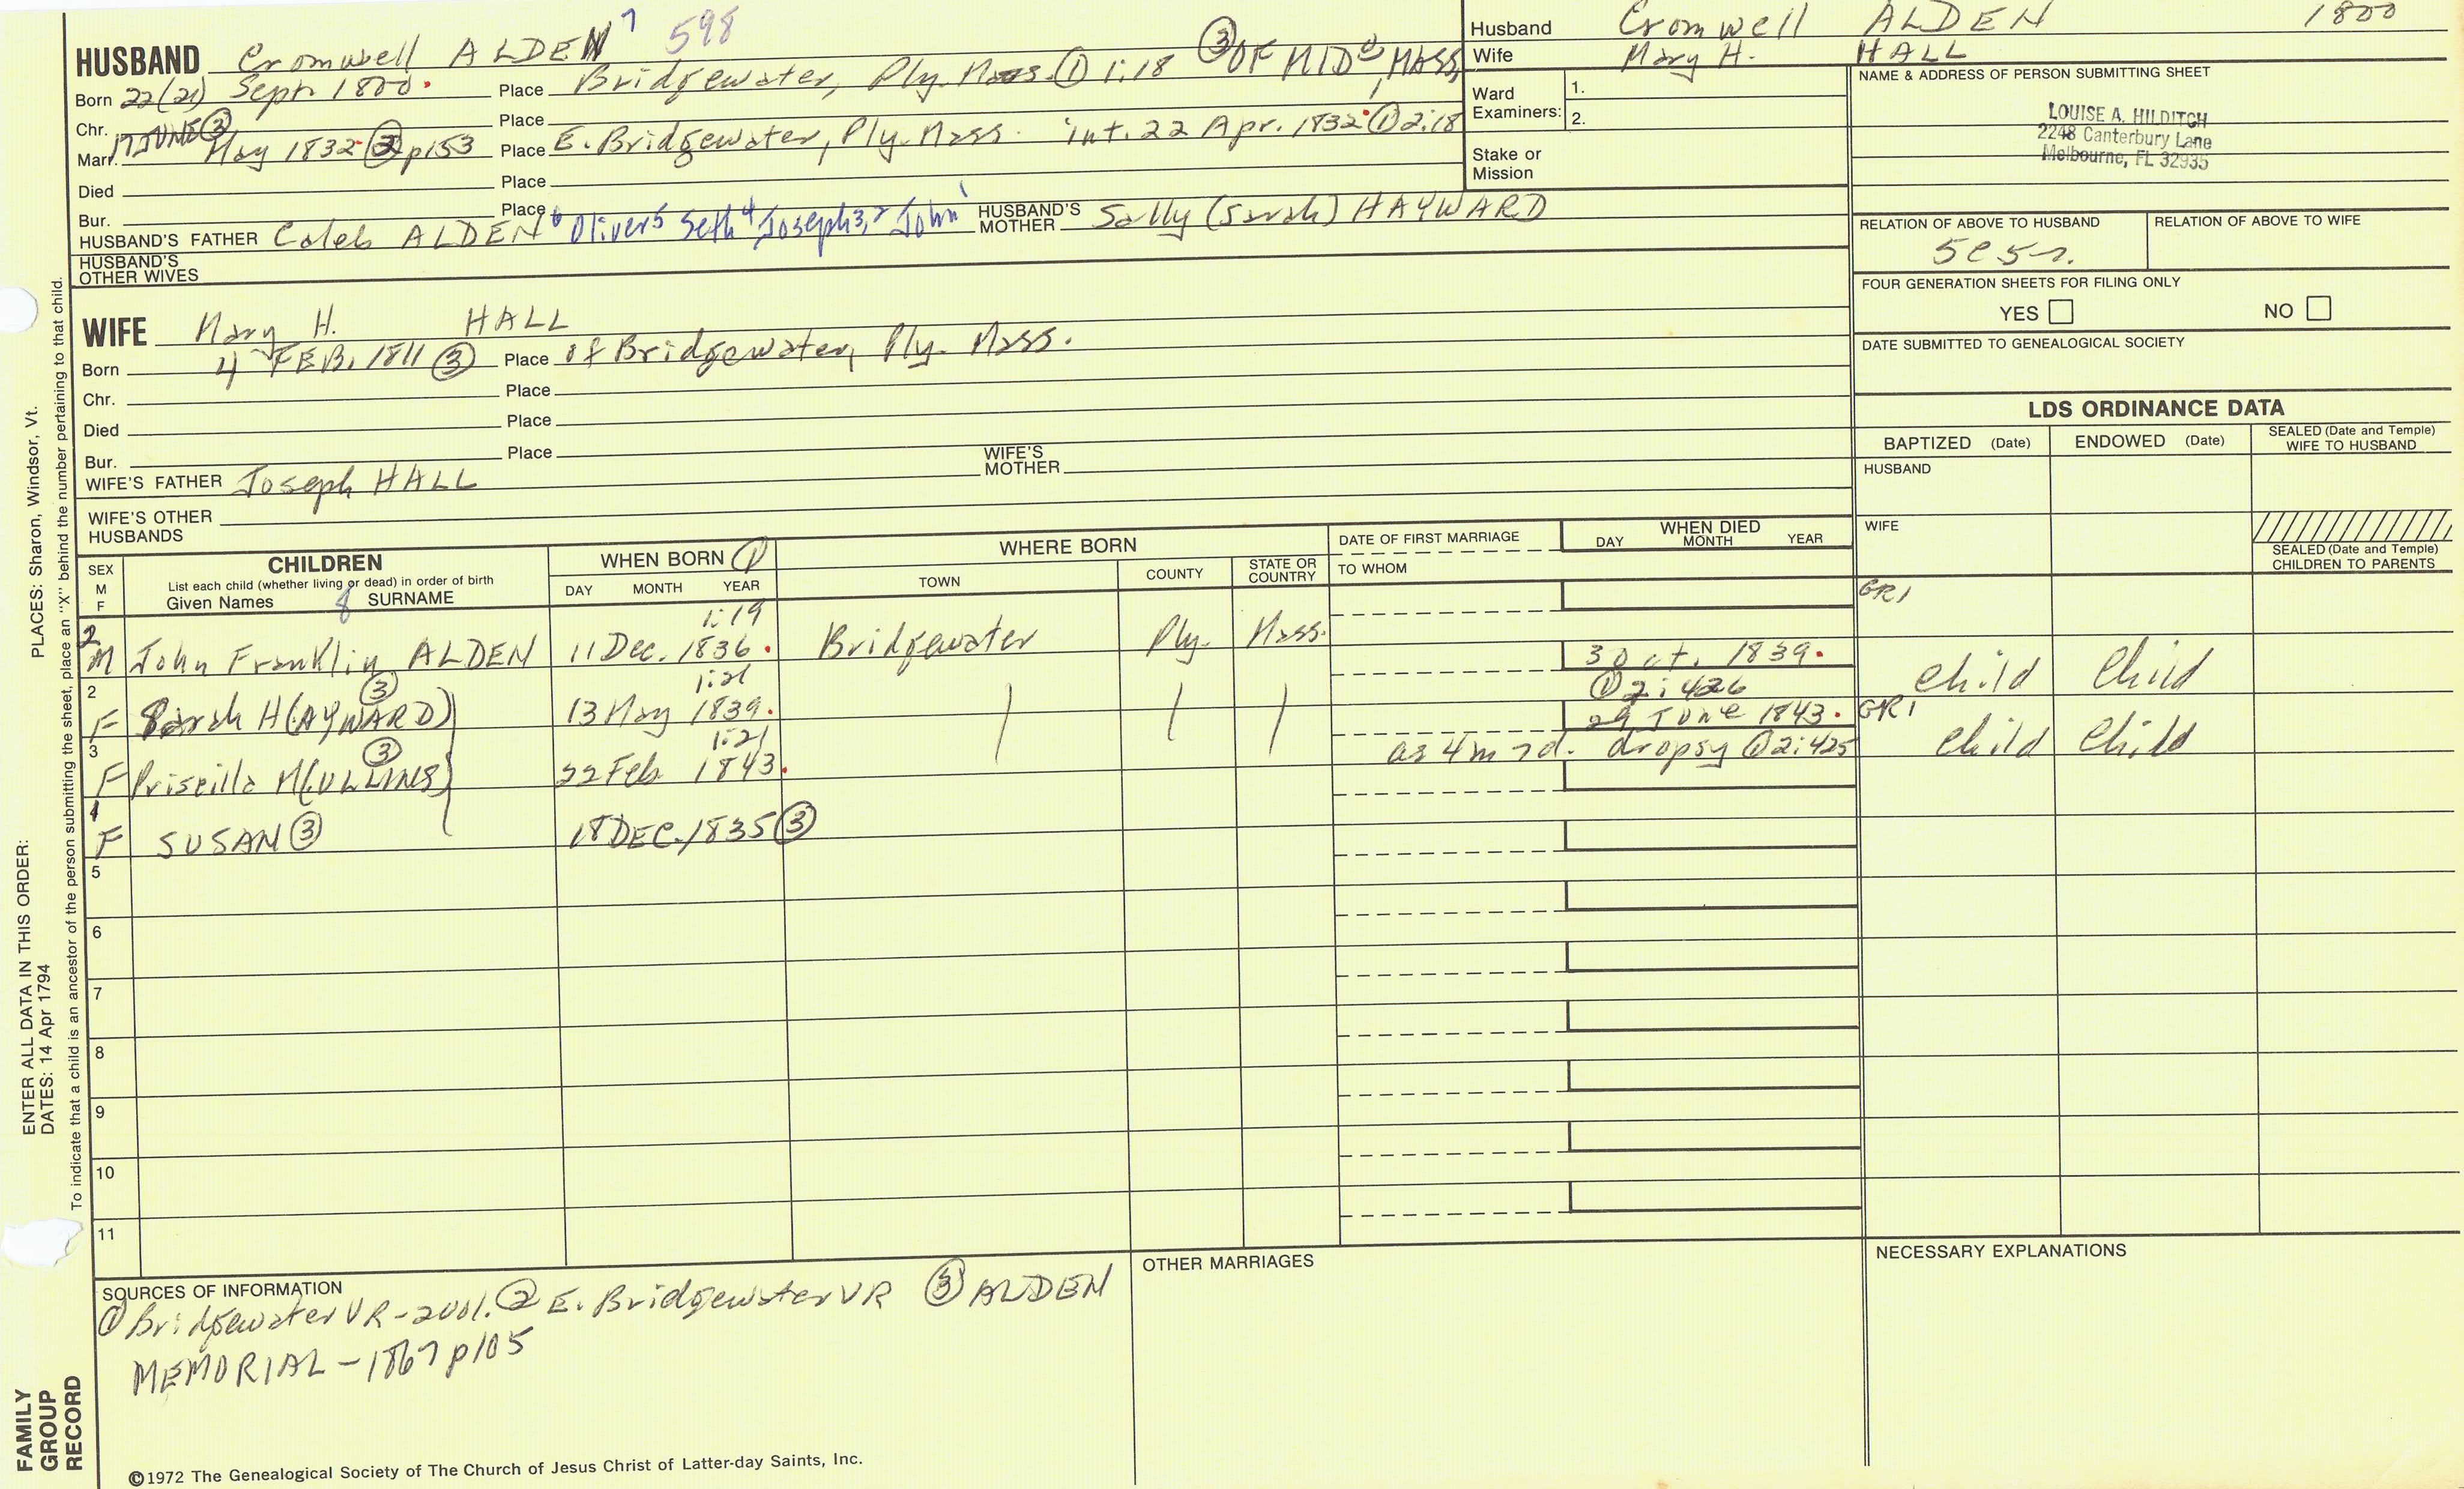 HUSBAND Cromwell ALDEN 7 598
Born 22(21) Sept. 1800. Place Bridgewater, Ply. Mass. ① 1:18 ③ OF MIDD, MASS,
Chr. Place
Marr. 17 JUNE ③ May 1832 ② p153 Place E. Bridgewater, Ply. Mass. int. 22 Apr. 1832 ① 2:18
Died Place
Bur. Place
HUSBAND'S FATHER Caleb ALDEN 6 Oliver 5 Seth 4 Joseph 3, 2 John 1 HUSBAND'S MOTHER Sally (Sarah) HAYWARD
HUSBAND'S OTHER WIVES
WIFE Mary H. HALL
Born 4 FEB. 1811 ③ Place of Bridgewater, Ply. Mass.
Chr. Place
Died Place
Bur. Place
WIFE'S FATHER Joseph HALL WIFE'S MOTHER
WIFE'S OTHER HUSBANDS
Husband Cromwell ALDEN 1800
Wife Mary H. HALL
Ward Examiners: 1.
2.
Stake or Mission
NAME & ADDRESS OF PERSON SUBMITTING SHEET
LOUISE A. HILDITCH
2248 Canterbury Lane
Melbourne, FL 32935
RELATION OF ABOVE TO HUSBAND RELATION OF ABOVE TO WIFE
FOUR GENERATION SHEETS FOR FILING ONLY
YES NO
DATE SUBMITTED TO GENEALOGICAL SOCIETY
LDS ORDINANCE DATA
BAPTIZED (Date) ENDOWED (Date) SEALED (Date and Temple) WIFE TO HUSBAND
HUSBAND
WIFE
SEALED (Date and Temple) CHILDREN TO PARENTS
SEX M F CHILDREN WHEN BORN ① WHERE BORN DATE OF FIRST MARRIAGE WHEN DIED
List each child (whether living or dead) in order of birth
Given Names 8 SURNAME DAY MONTH YEAR TOWN COUNTY STATE OR COUNTRY TO WHOM DAY MONTH YEAR
1:19 GR1
2 M John Franklin ALDEN 11 Dec. 1836. Bridgewater Ply. Mass.
1:21 3 Oct. 1839.
2 F Sarah H(AYWARD) ③ 13 May 1839. ① 2:426 Child Child
1:21 29 June 1843. GR1
3 F Priscilla M(ULLINS) ③ 22 Feb 1843. ae 4m 7d. dropsy ① 2:425 Child Child
4 F SUSAN ③ 18 DEC. 1835 ③
5
6
7
8
9
10
11
SOURCES OF INFORMATION
① Bridgewater VR-2vol. ② E. Bridgewater VR ③ ALDEN
MEMORIAL - 1867 p105
OTHER MARRIAGES
NECESSARY EXPLANATIONS
©1972 The Genealogical Society of The Church of Jesus Christ of Latter-day Saints, Inc.
FAMILY GROUP RECORD
ENTER ALL DATA IN THIS ORDER:
DATES: 14 Apr 1794
PLACES: Sharon, Windsor, Vt.
To indicate that a child is an ancestor of the person submitting the sheet, place an "X" behind the number pertaining to that child.